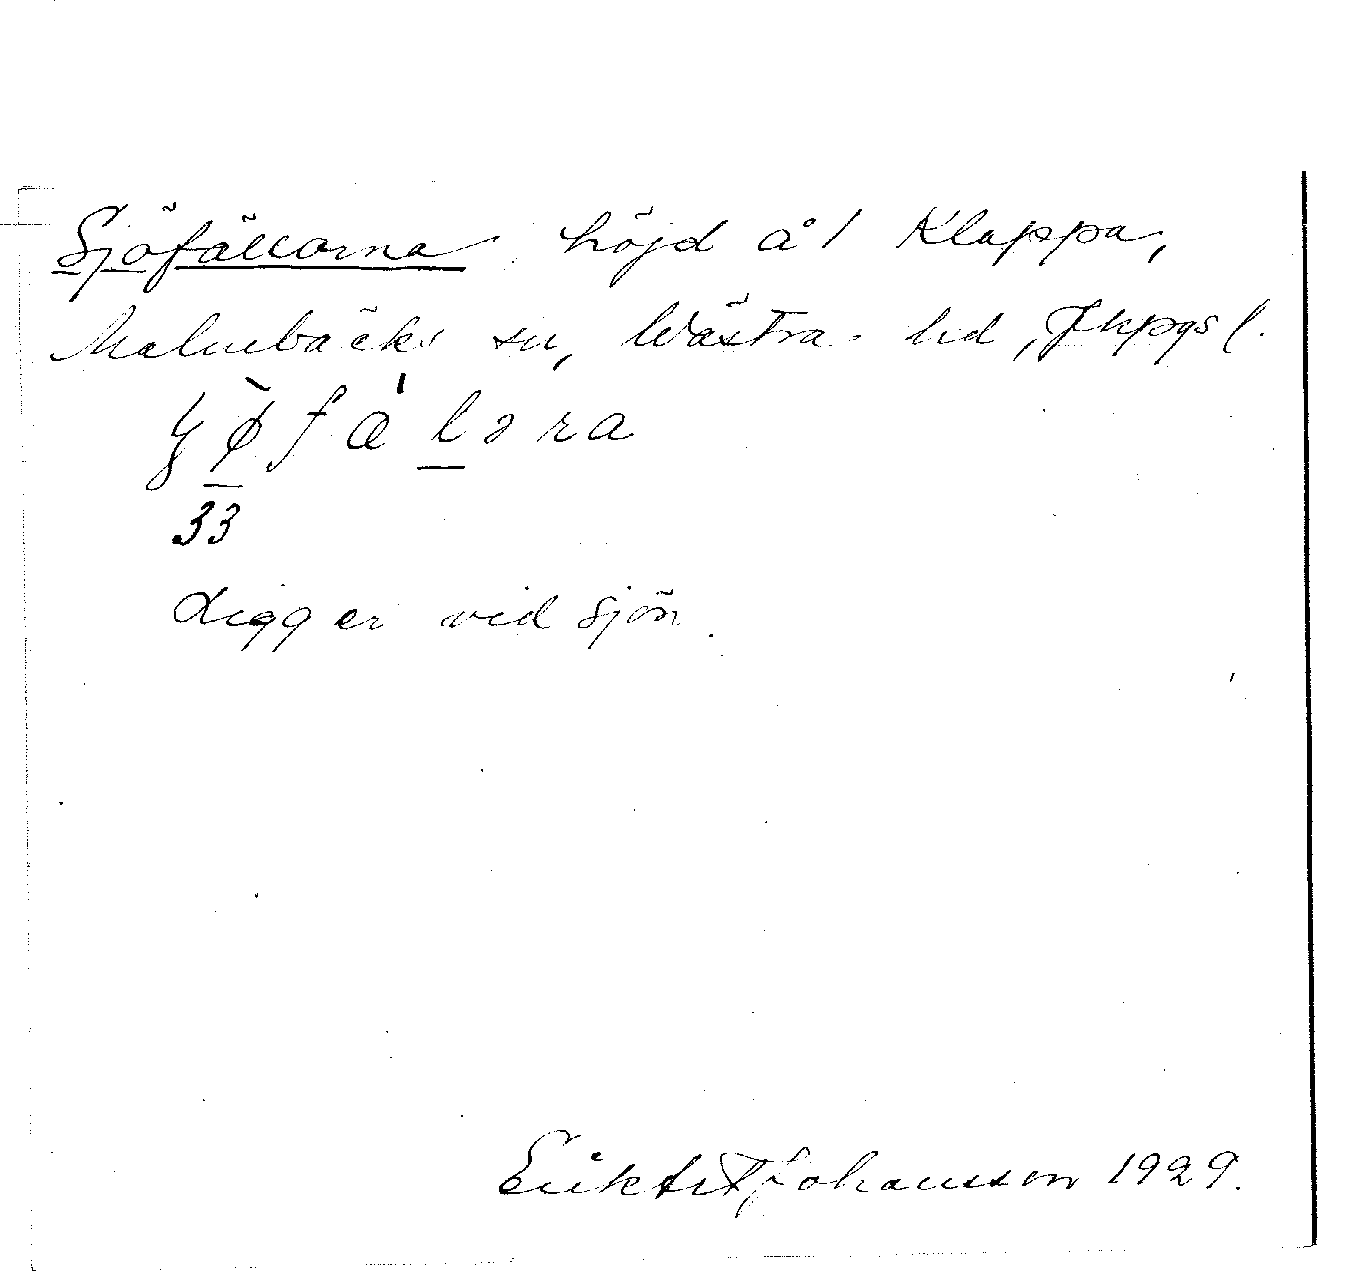 Sjöfällorna höjd å 1 Klappa,
Malmbäcks sn, Västra hd, Jkpgs l.
33
Ligger vid sjön.
Johansson 1929.